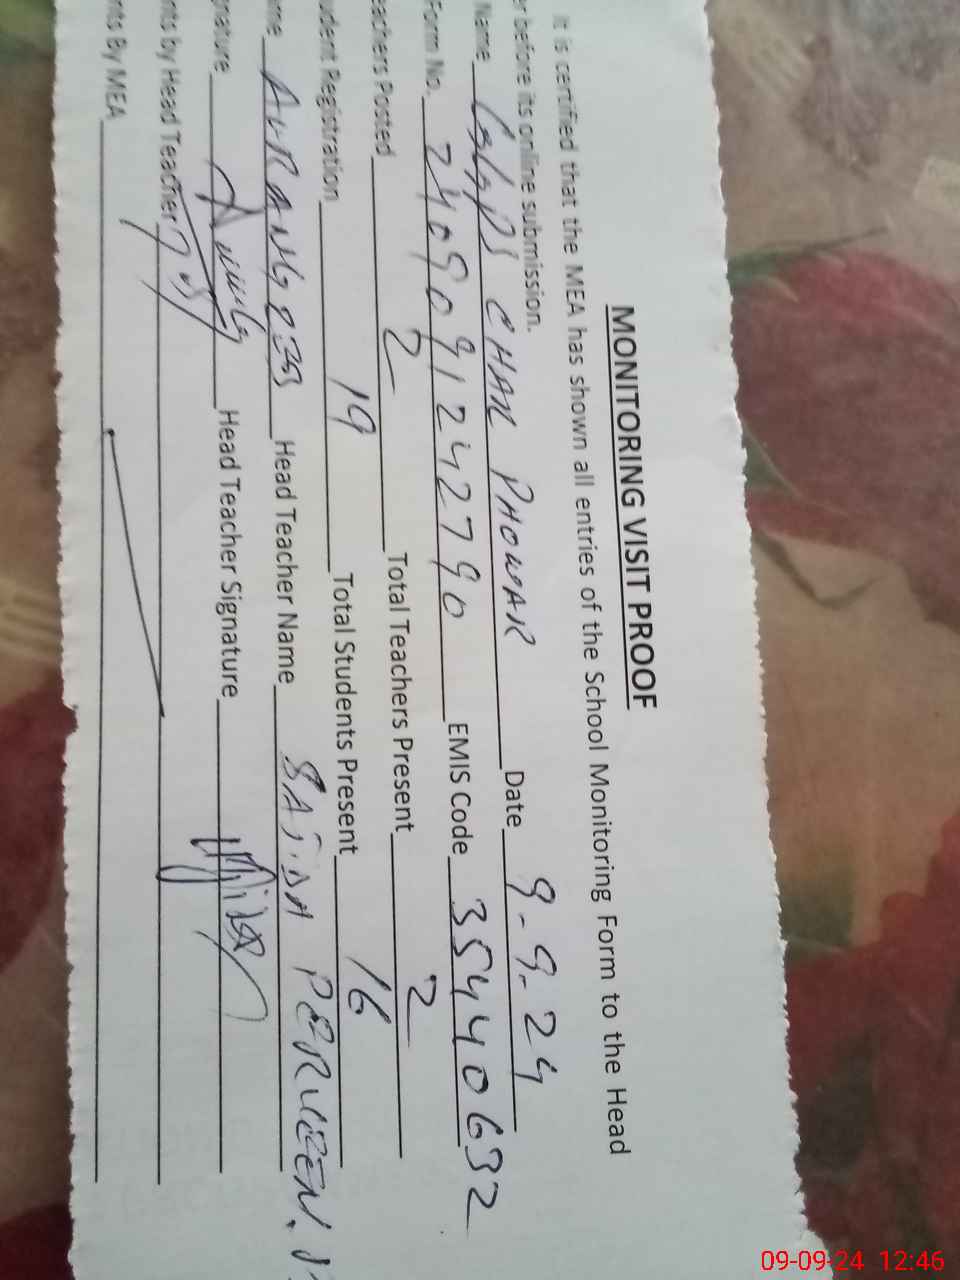 MONITORING VISIT PROOF
It is certified that the MEA has shown all entries of the School Monitoring Form to the Head
r before its online submission.
Name GGPS CHAK PHOWAR Date 9-9-24
Form No. 2409091242790 EMIS Code 35440632
eachers Posted 2 Total Teachers Present 2
udent Registration 19 Total Students Present 16
ame AURANGZEB Head Teacher Name SAJIDA PERVEEN.
gnature Head Teacher Signature
nts by Head Teacher
nts By MEA
09-09-24 12:46